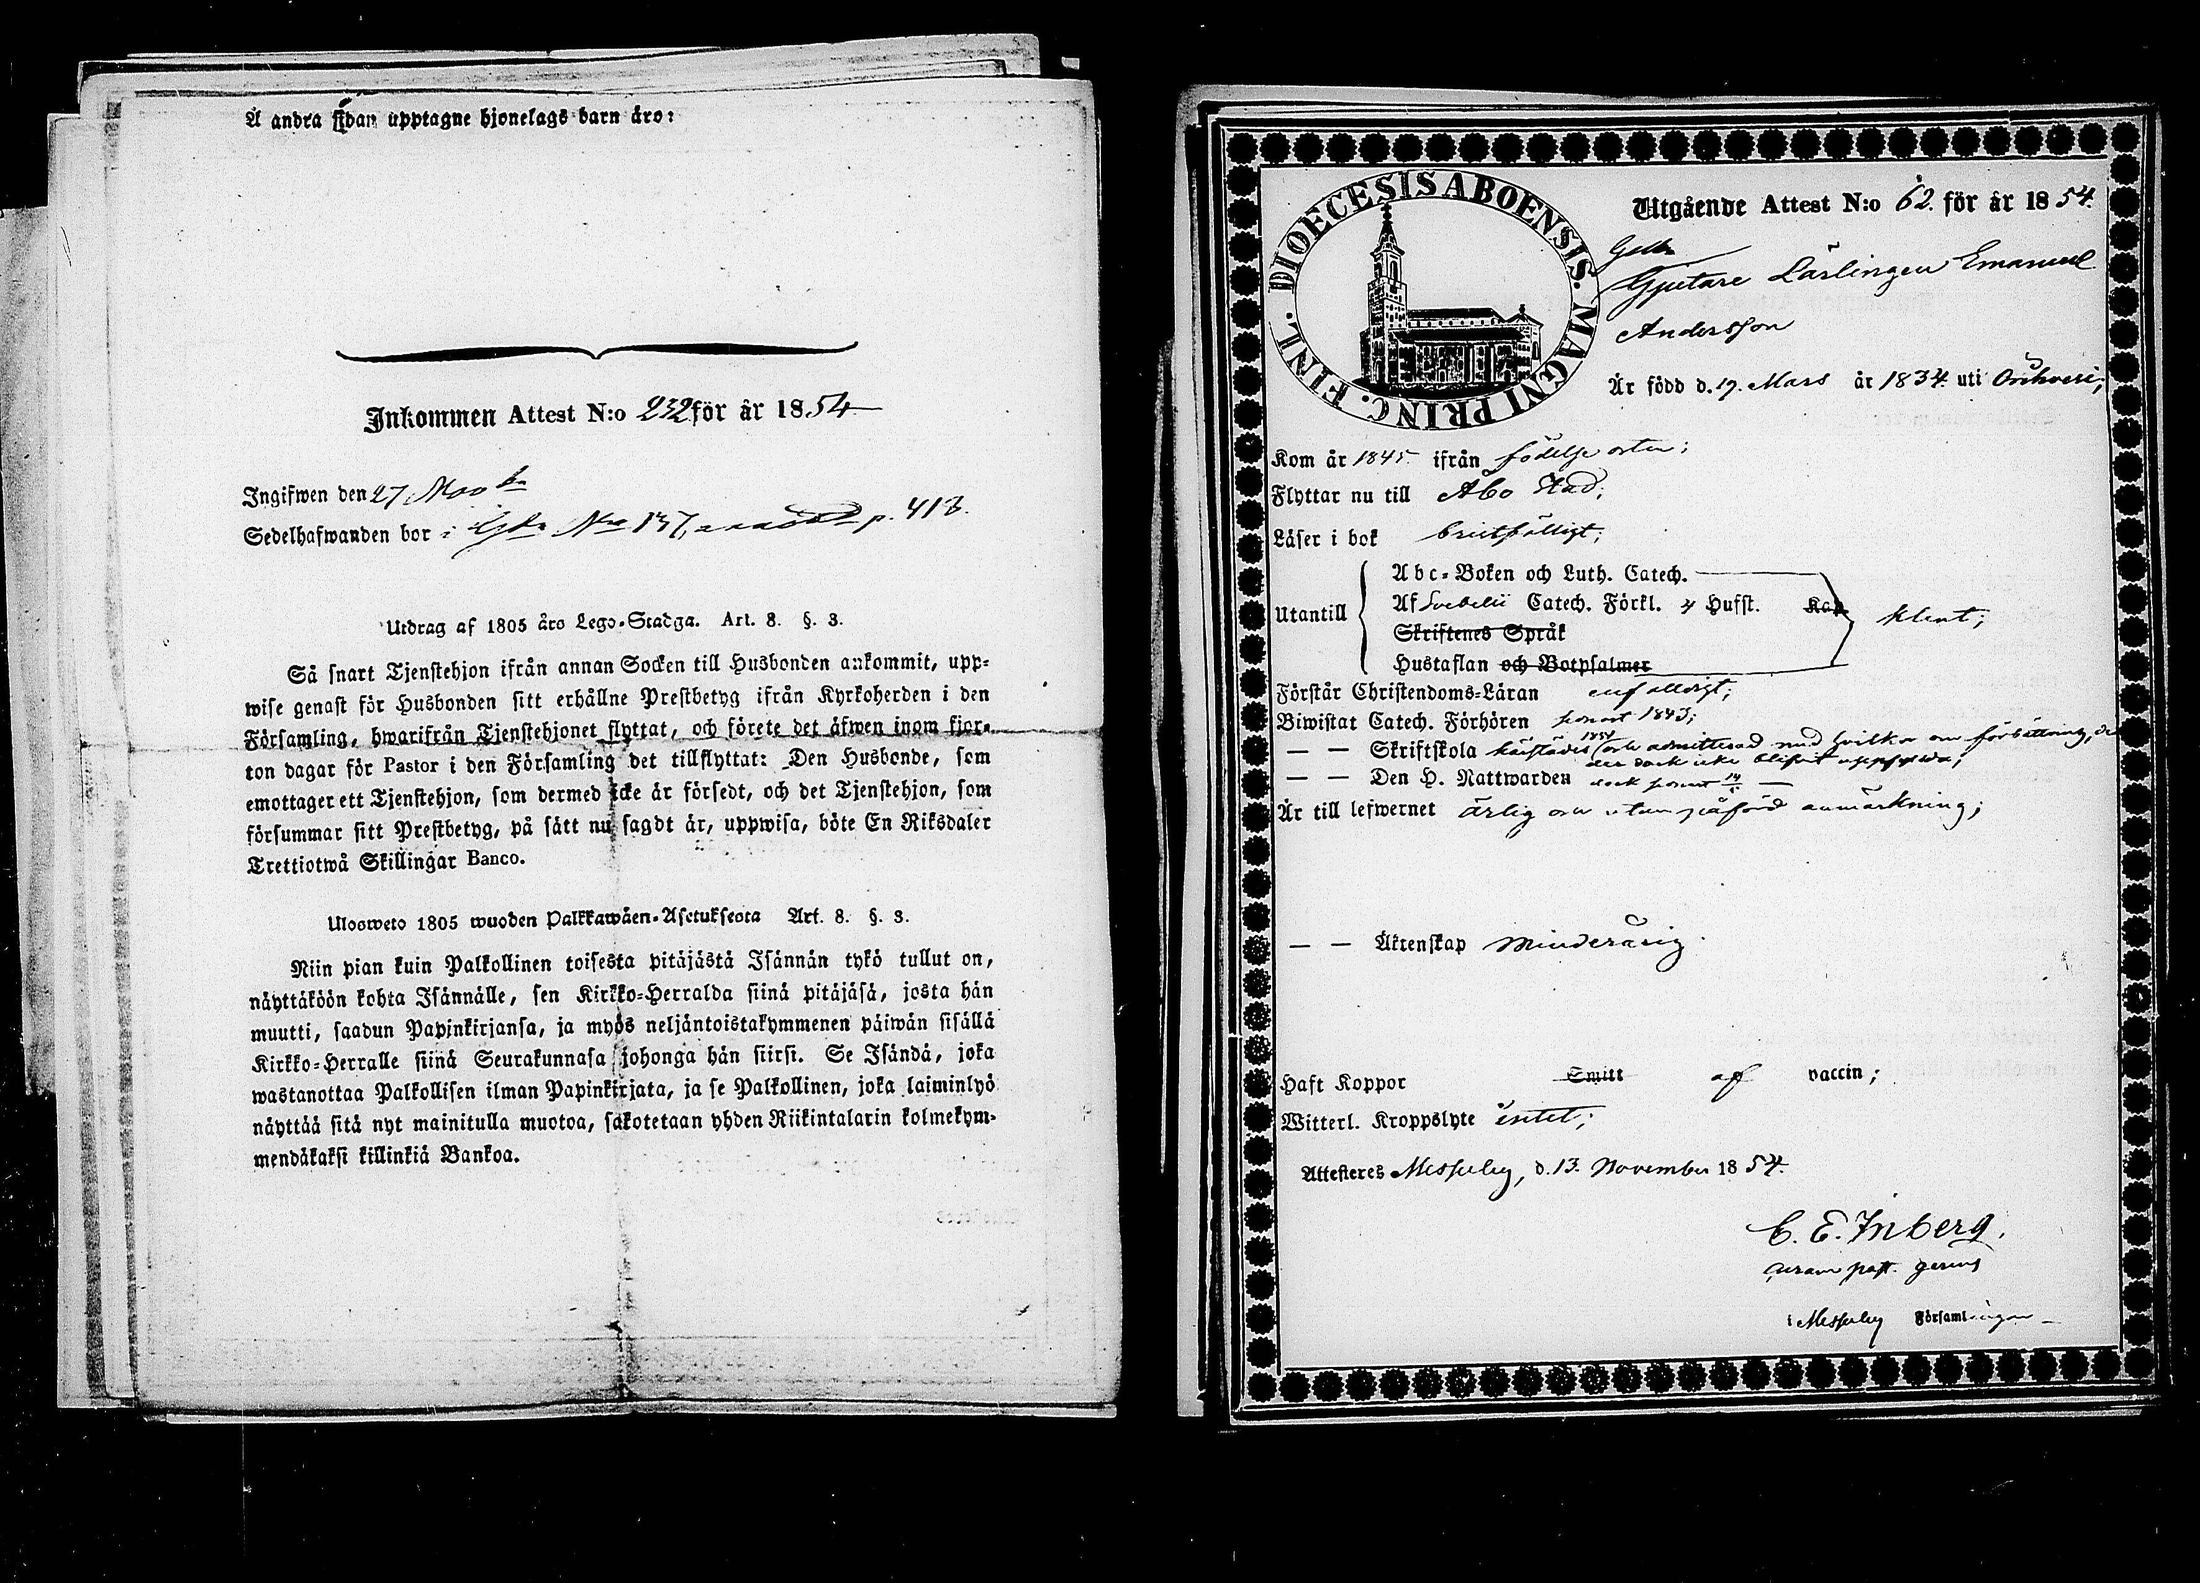 Å andra sidan upptagne hjonelags barn äro:
Inkommen Attest N:o 232 för år 1854
Ingifwen den 27 Novbr
Sedelhafwanden bor i No 137, p. 413.
Utdrag af 1805 års Lego-Stadga. Art. 8. §. 3.
Så snart Tjenstehjon ifrån annan Socken till Husbonden ankommit, upp-
wise genast för Husbonden sitt erhållne Prestbetyg ifrån Kyrkoherden i den
Församling, hwarifrån Tjenstehjonet flyttat, och förete det äfwen inom fjor-
ton dagar för Pastor i den Församling det tillflyttat: Den Husbonde, som
emottager ett Tjenstehjon, som dermed icke är försedt, och det Tjenstehjon, som
försummar sitt Prestbetyg, på sätt nu sagdt är, uppwisa, böte En Riksdaler
Trettiotwå Skillingar Banco.
Ulosweto 1805 wuoden Palkkawäen-Asetuksesta Art. 8. §. 3.
Niin pian kuin Palkollinen toisesta pitäjästä Isännän tykö tullut on,
näyttäköön kohta Isännälle, sen Kirkko-Herralda siinä pitäjäsä, josta hän
muutti, saadun Papinkirjansa, ja myös neljäntoistakymmenen päiwän sisällä
Kirkko-Herralle siinä Seurakunnasa johonga hän siirsi. Se Isändä, joka
wastanottaa Palkollisen ilman Papinkirjata, ja se Palkollinen, joka laiminlyö
näyttää sitä nyt mainitulla muotoa, sakotetaan yhden Riikintalarin kolmekym-
mendäkaksi killinkiä Bankoa.
DIOECESIS ABOENSIS. MAGNI PRINC. FINL.
Utgående Attest N:o 62. för år 1854.
Gjutare Lärlingen Emanuel
Andersson
Är född d. 19. Mars år 1834. uti Orihvesi;
Kom år 1845. ifrån födelse orten;
Flyttar nu till Åbo Stad;
Läser i bok bristfälligt;
Utantill
Abc-Boken och Luth. Catech.
Af Svebelii Catech. Förkl. 4 Hufst. Kap.
Skriftenes Språk
Hustaflan och Botpsalmer
klent;
Förstår Christendoms-Läran enfalldigt;
Biwistat Catech. Förhören senast 1843;
— — Skriftskola 1854 och admitterad med hvilkor om förbättring, de
der dock icke blifvit uppfyllda;
— — Den H. Nattwarden dock senast
Är till lefwernet ärlig och utan påförd anmärkning;
— — Äktenskap Minderårig.
Haft Koppor Smitt af vaccin;
Witterl. Kroppslyte intet;
Attesteras Messuby, d. 13. November 1854.
C. E. Inberg.
curam past. gerens
i Messuby Församlingen